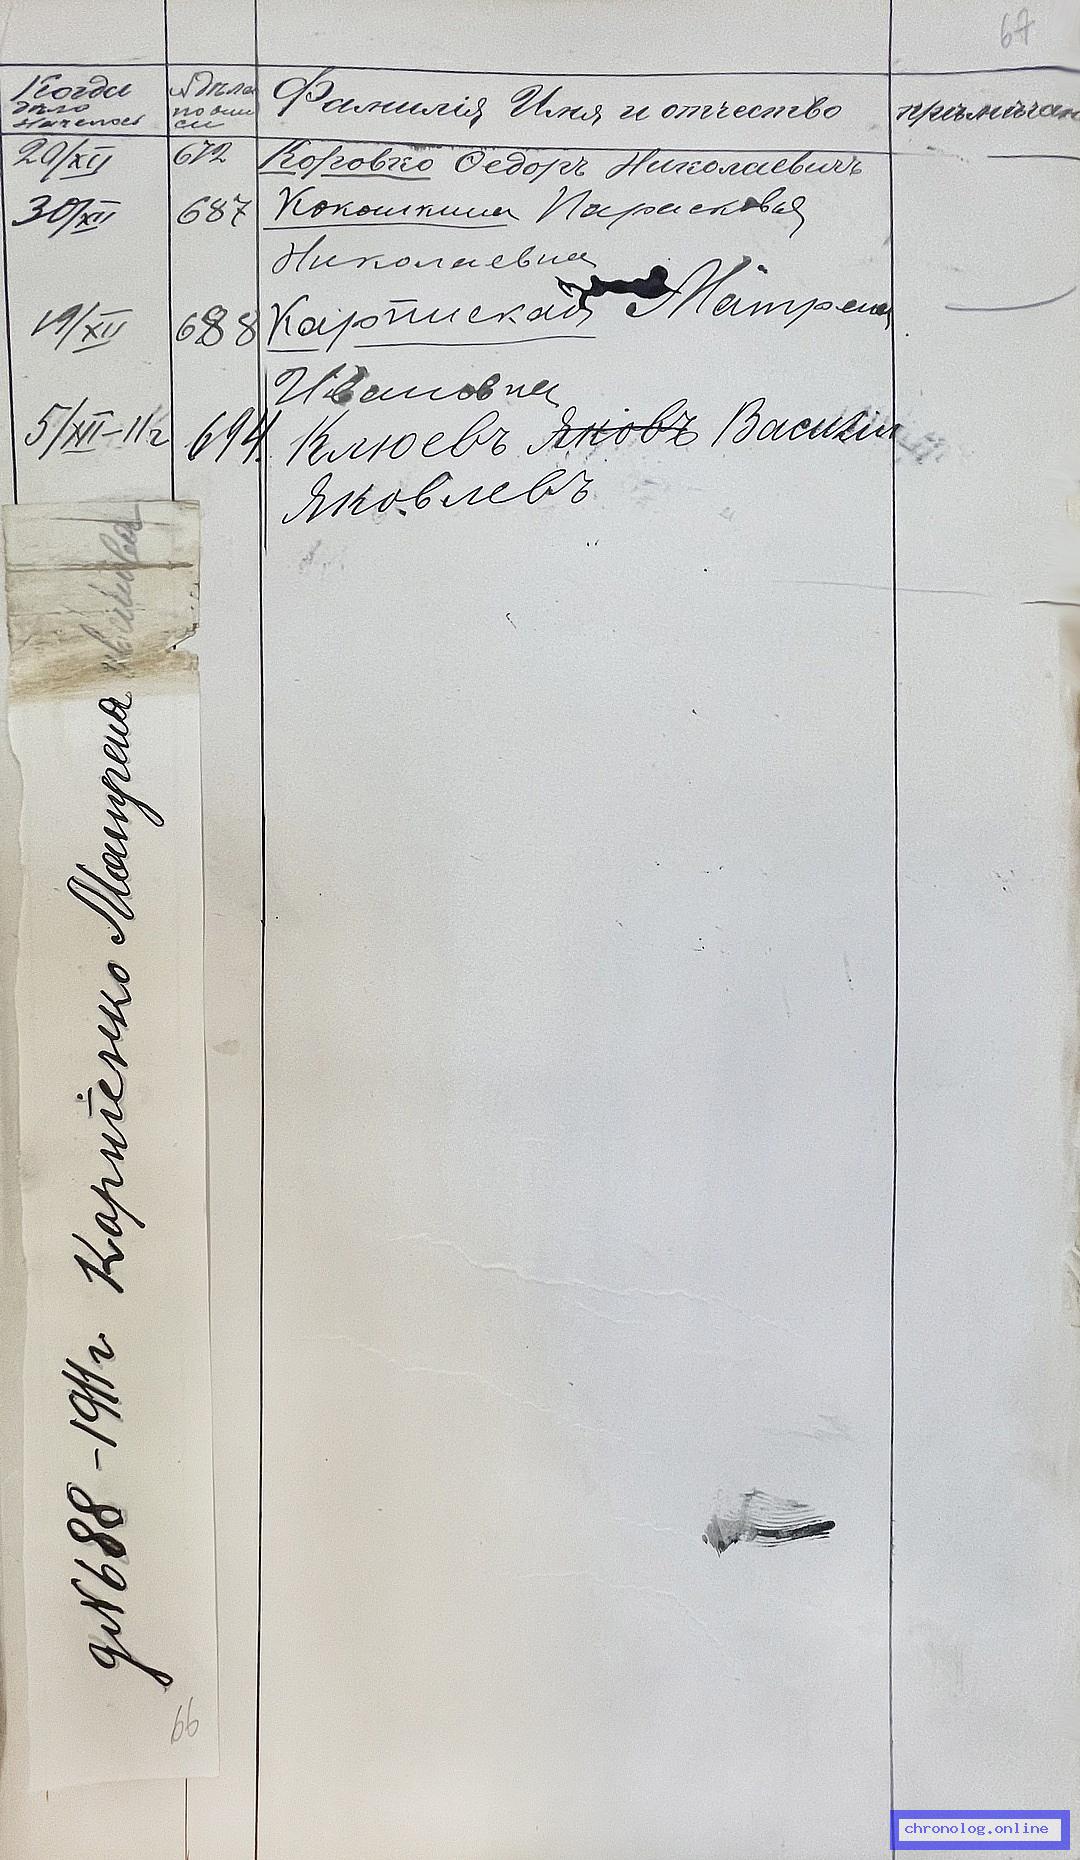 67
Когда
дѣло
началось
№ дѣла
по опи
си
Фамилія Имя и отчество
примѣчан
29/XII
672
Коровко Федоръ Николаевичъ
30/XII
687
Кокошкина Парасковья
Николаевна
19/XII
688
Матрена
Ивановна
5/XII-11г
694.
Клюевъ Яковъ Василій
Яковлевъ
д№688-1911г Корпіенко Матрена
66
chronolog.online